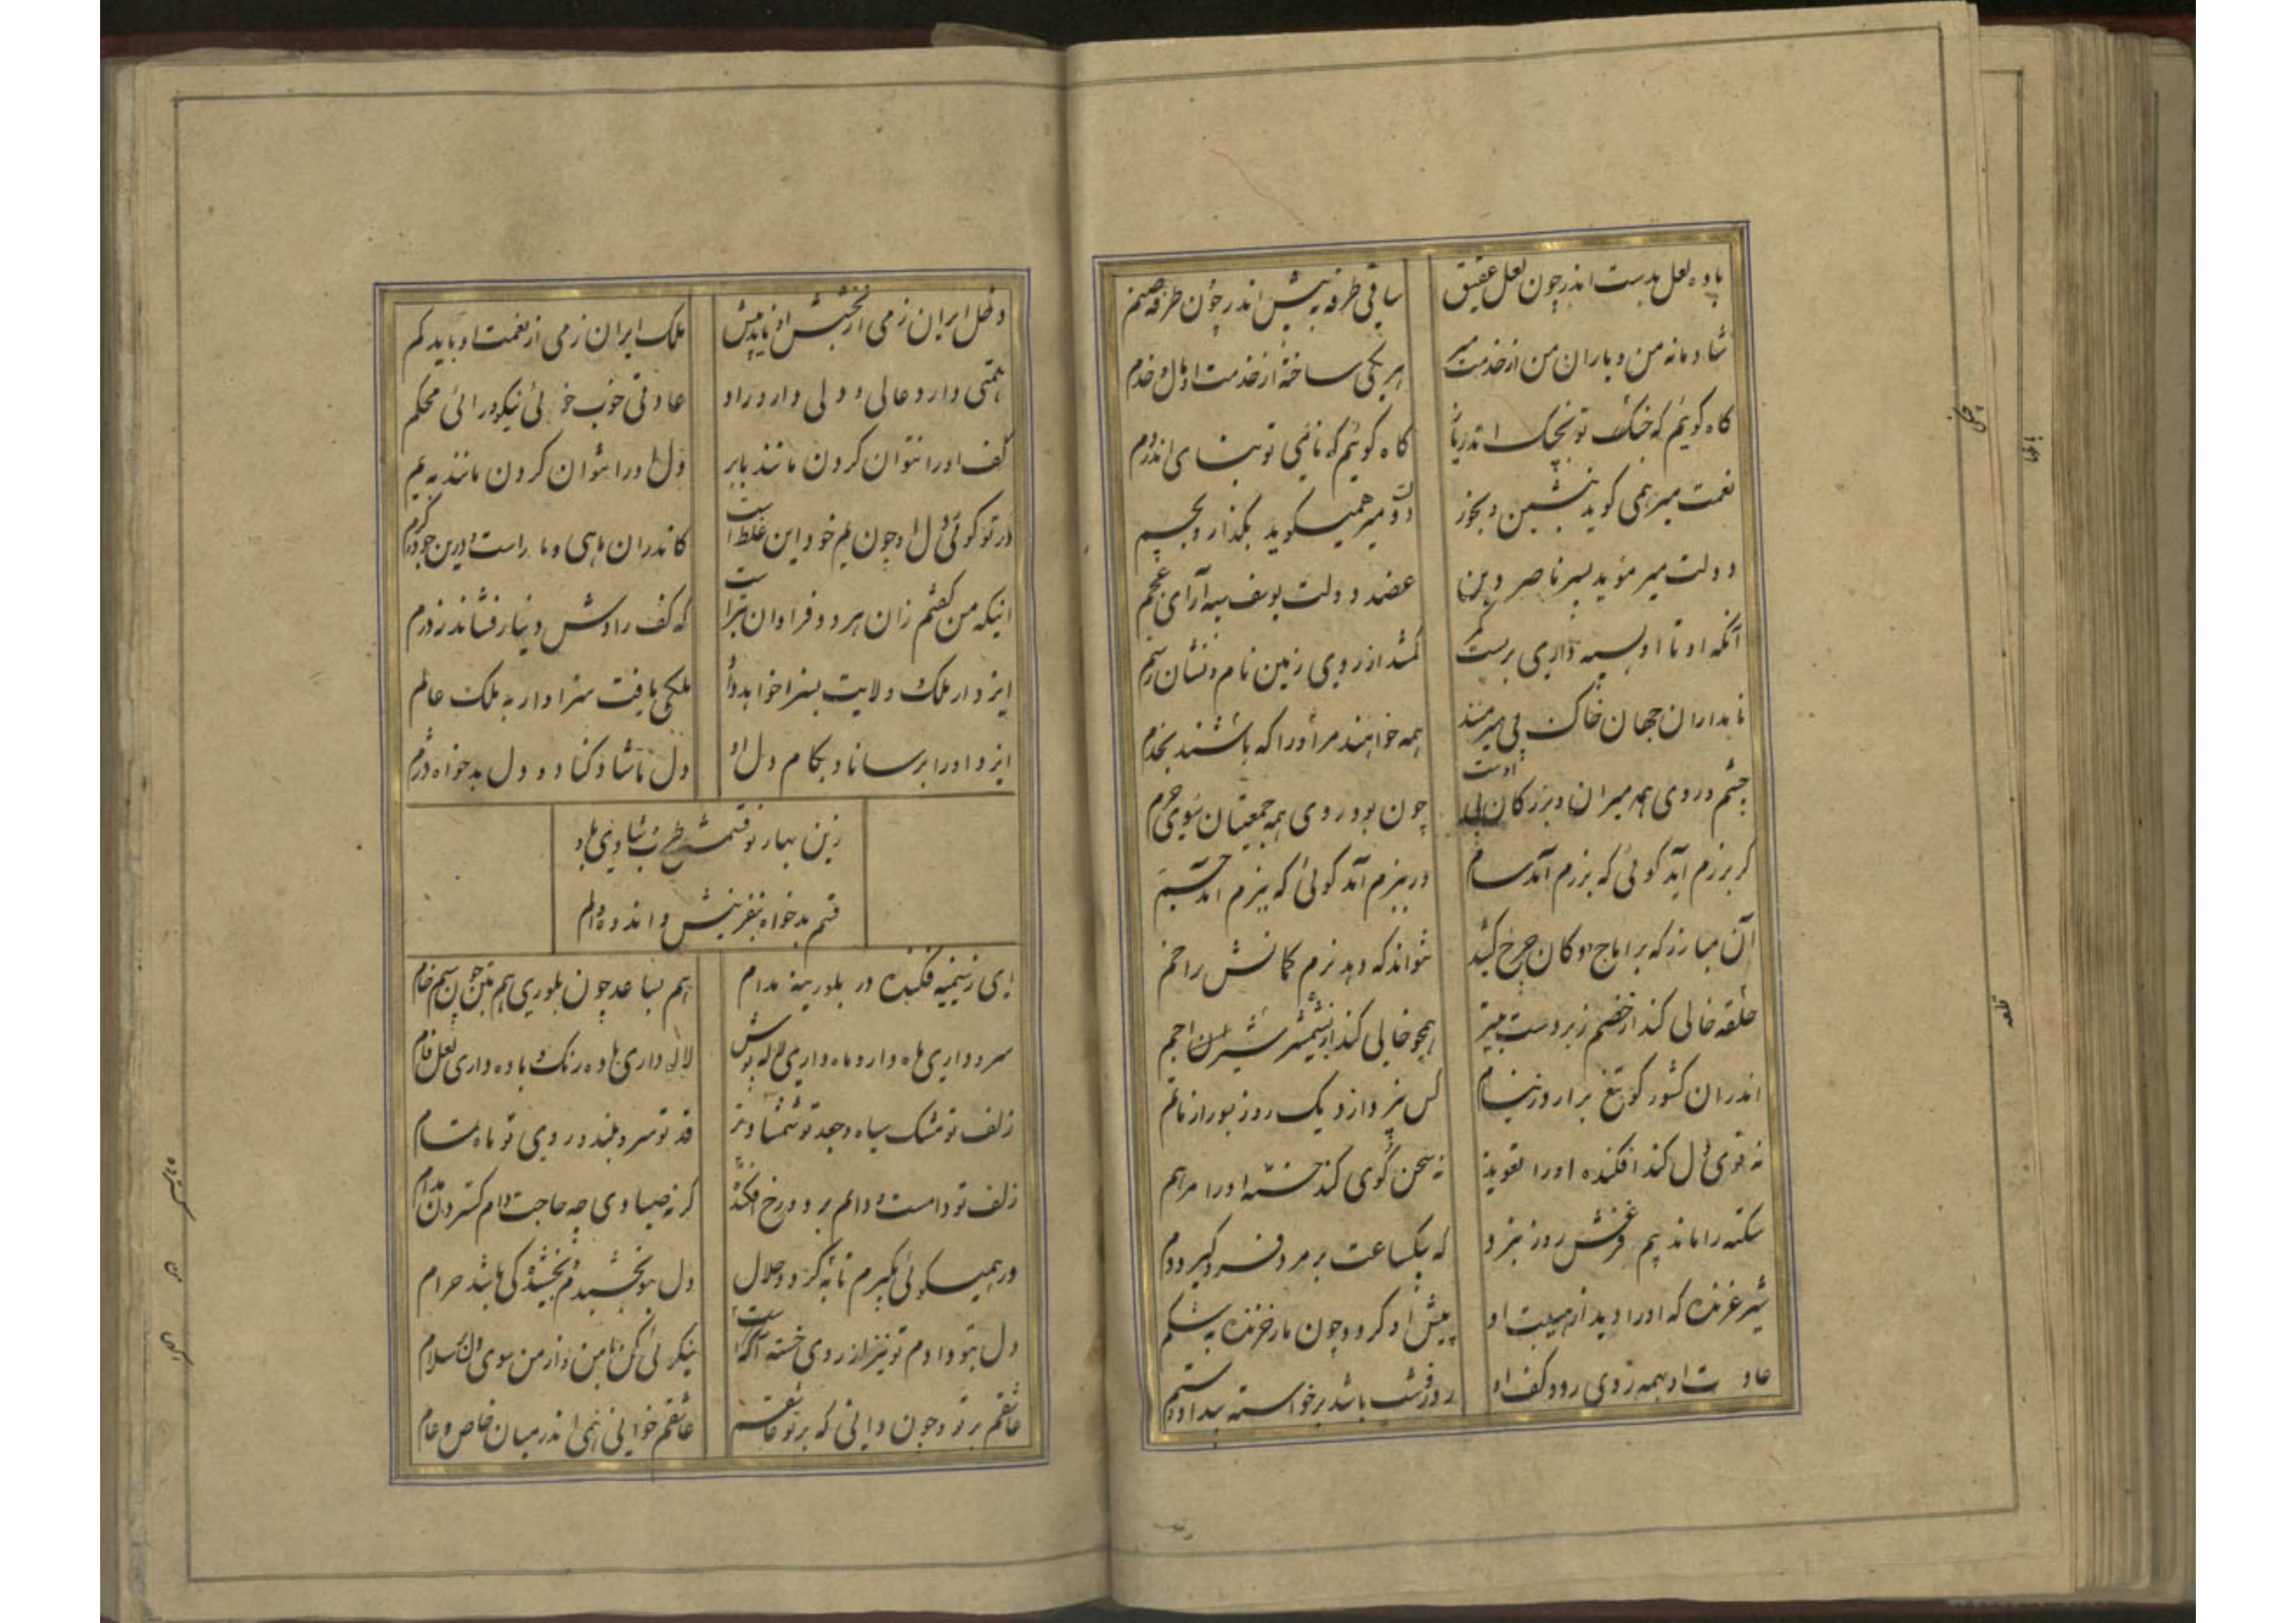 باده لعل بدست اندر چون لعل عقیق
ساقی طرفه به پیش اندر چون طرفه صنم
شادمانه من و یاران من از خدمت میر
هر یکی ساخته از خدمت او مال و خدم
کاه کویم که چنک تو بچنک اندر یاز
کاه کویم که نائی تو بنای اندر دم
نعمت میر همی کوید بنشین و بخور
دولت میر همیکوید بکذار و بچم
دولت میر موید پسر ناصر دین
عضد دولت یوسف سپه آرای عجم
آنکه او تا او بسپه داری بربست کمر
کمشد از روی زمین نام و نشان رستم
نامداران جهان خاک پی میر منند
همه خواهند مر او را که باشند بخدم
چشم و روی همه میران و بزرکان پی اوست
چون بود روی همه جمعیتان سوی حرم
کر برزم آید کوئی که برزم آمد سام
ور ببزم آمد کوئی که ببزم آمد جم
آن مبارز که بر اماج دو کان چرخ کشد
نتواند که دهد نرم کمانش را خم
حلقه خالی کند از خصم زبردست بتیر
همچو خالی کند از شمشیر شیران اجم
اندران کشور کو تیغ برارد ز نیام
کس نپردازد یک روز بسور از ماتم
نه قوی دل کند افکنده او را تعویذ
نه سخن کوی کند خسته او را مرهم
سکته را ماند بیم فزعش روز نبرد
که بیکساعت بر مرد فرو کیرد دم
شیر غرنده که او را دید از هیبت او
پیش او کردد چون مار خزنده به شکم
عادت او همه رادی رود کف او
روز و شب باشد برخواسته بیداد و ستم
دخل ایران زمی از بخشش او ناید بیش
ملک ایران زمی از نعمت او باید کم
همتی دارد عالی و دلی دارد راد
عادتی خوب خوئی نیکو و رائی محکم
کف او را نتوان کردن مانند بابر
دل او را نتوان کردن مانند به یم
ور تو کوئی دل او چون یم خود این غلط است
کاندران ماهی و مار است و درین جود و کرم
اینکه من کفتم زان هر دو فراوان بتر است
که کف رادش دینار فشاند ز درم
ایزد ار ملک ولایت بسزا خواهد داد
ملکی یافت سزاوار به ملک عالم
ایزد او را برساناد بکام دل او
دل ما شاد کناد و دل بدخواه دژم
زین بهار نو قسمش طرب و شادی باد
قسم بدخواه بنفرینش و اندوه و الم
ای زسیمینه فکنده در بلورینه مدام
هم بساعد چون بلوری هم بتن چون سیم خام
سرو داری ماه دار و ماه داری لاله پوش
لاله داری باده رنک و باده داری لعل فام
زلف تو مشک سیاه و جعد تو شمشاد تر
قد تو سرو بلند و روی تو ماه تمام
زلف تو دامست و دائم بر دو رخ افکنده
کر نه صیادی چه حاجت دام کستردن مدام
ور همیکوئی بکیرم تا به کردد حلال
دل بتو بخشیدم بخشیده کی باشد حرام
دل بتو دادم تو نیز از روی خسته اکه است
نیکر لی کن با من و از من سوی دل سلام
عاشقم بر تو و چون دانی که بر تو عاشقم
عاشقم خوانی همی اندر میان خاص و عام